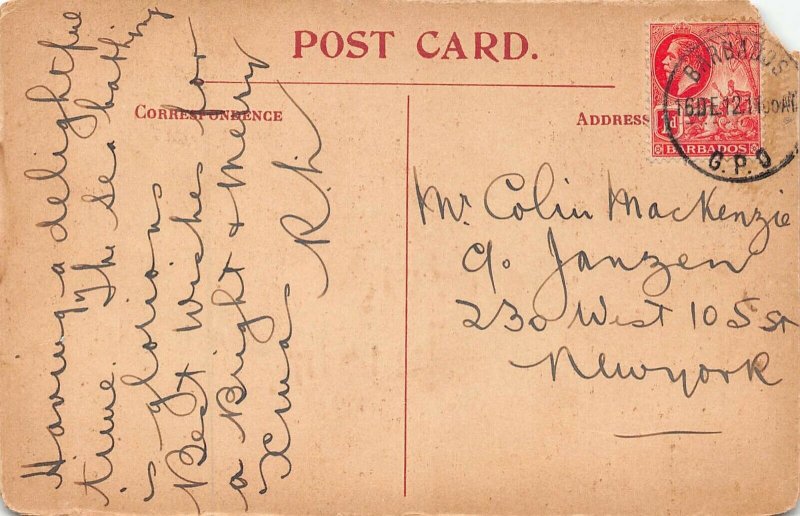 POST CARD.
CORRESPONDENCE
ADDRESS
BARBADOS
16 DE 12. 11 00 AM
G.P.O
1d
BARBADOS
Having a delightful
time. The sea bathing
glorious
Best Wishes for
a Bright & Merry
Xmas
R.L.
Mr Colin MacKenzie
c/o Janzen
230 West 105 st
New york